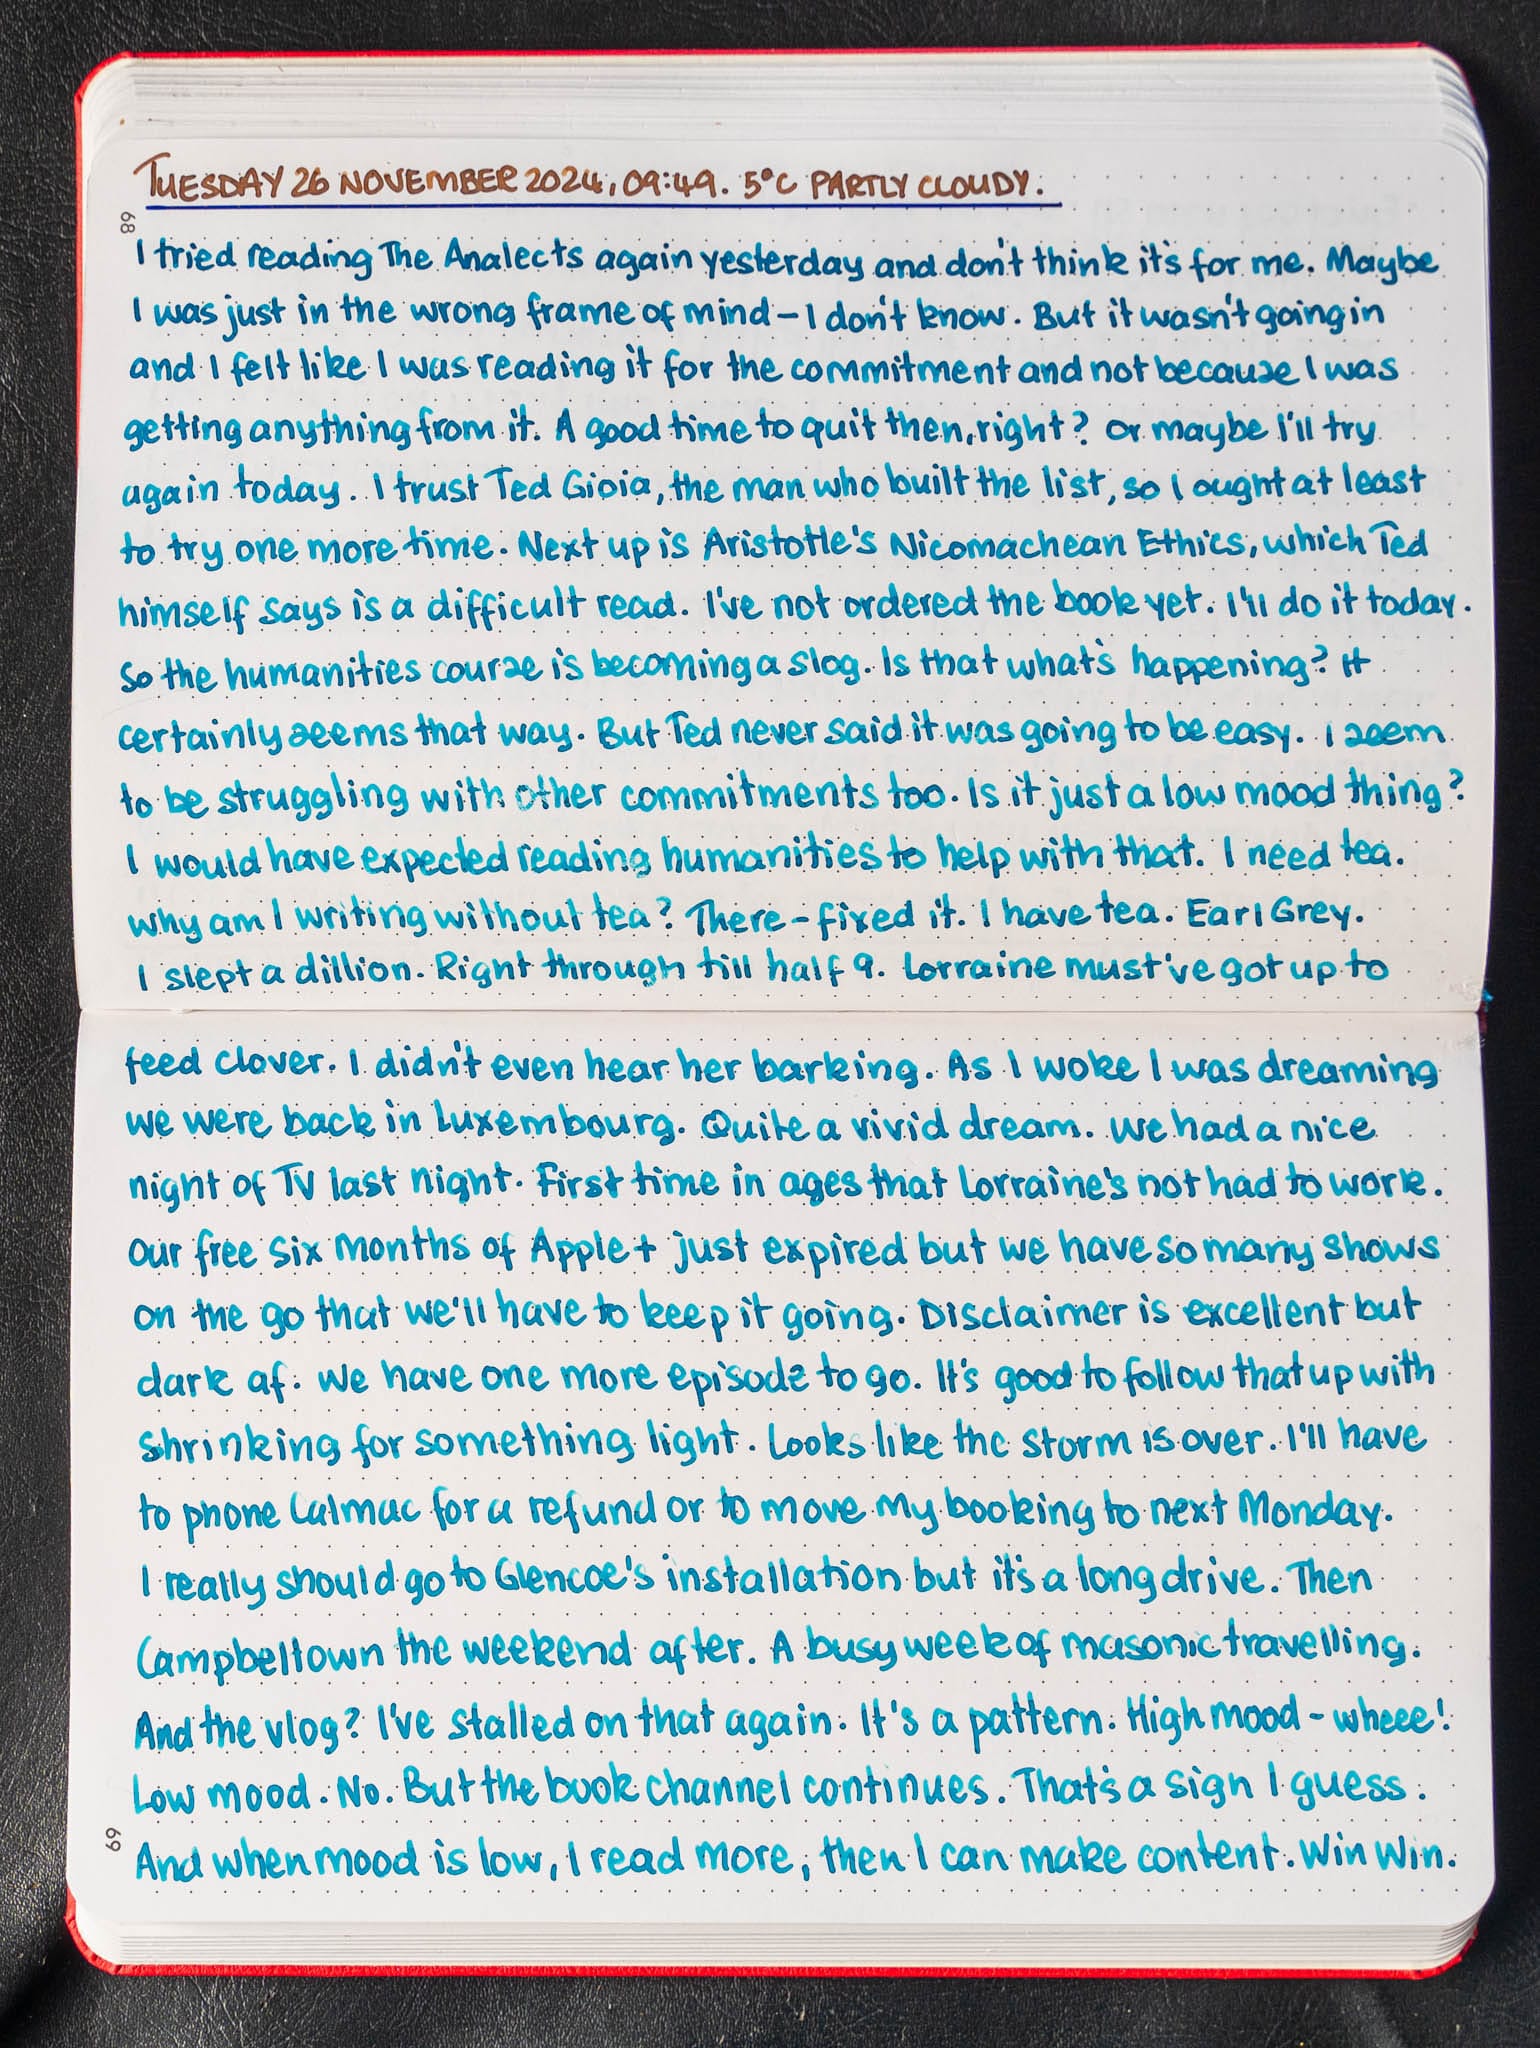 TUESDAY 26 NOVEMBER 2024, 09:49. 5°C PARTLY CLOUDY.
68
I tried reading The Analects again yesterday and don't think it's for me. Maybe
I was just in the wrong frame of mind – I don't know. But it wasn't going in
and I felt like I was reading it for the commitment and not because I was
getting anything from it. A good time to quit then, right? Or maybe I'll try
again today. I trust Ted Gioia, the man who built the list, so I ought at least
to try one more time. Next up is Aristotle's Nicomachean Ethics, which Ted
himself says is a difficult read. I've not ordered the book yet. I'll do it today.
So the humanities course is becoming a slog. Is that what's happening? It
certainly seems that way. But Ted never said it was going to be easy. I seem
to be struggling with other commitments too. Is it just a low mood thing?
I would have expected reading humanities to help with that. I need tea.
Why am I writing without tea? There – fixed it. I have tea. Earl Grey.
I slept a dillion. Right through till half 9. Lorraine must've got up to
feed Clover. I didn't even hear her barking. As I woke I was dreaming
we were back in Luxembourg. Quite a vivid dream. We had a nice
night of TV last night. First time in ages that Lorraine's not had to work.
Our free six months of Apple+ just expired but we have so many shows
on the go that we'll have to keep it going. Disclaimer is excellent but
dark af. We have one more episode to go. It's good to follow that up with
Shrinking for something light. Looks like the storm is over. I'll have
to phone Calmac for a refund or to move my booking to next Monday.
I really should go to Glencoe's installation but it's a long drive. Then
Campbeltown the weekend after. A busy week of masonic travelling.
And the vlog? I've stalled on that again. It's a pattern. High mood – wheee!
Low mood. No. But the book channel continues. That's a sign I guess.
And when mood is low, I read more, then I can make content. Win Win.
69